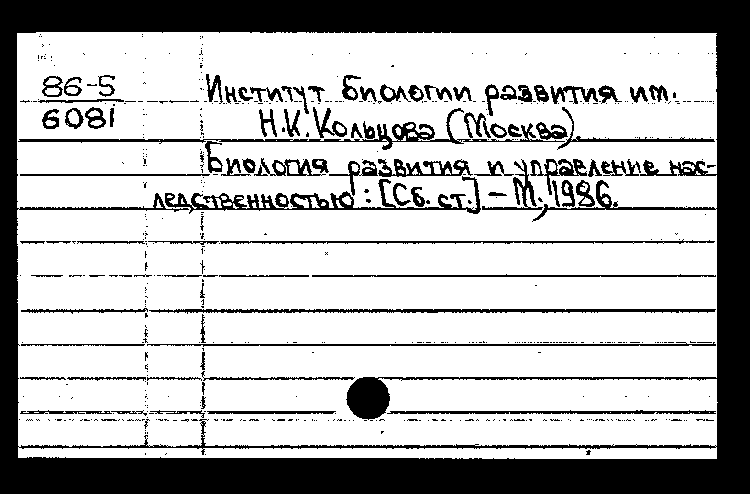 86-5 Институт биологии развития им.
6081 Н.К. Кольцова (Москва).
Биология развития и управление нас-
ледственностью : [Сб. ст.] – М., 1986.